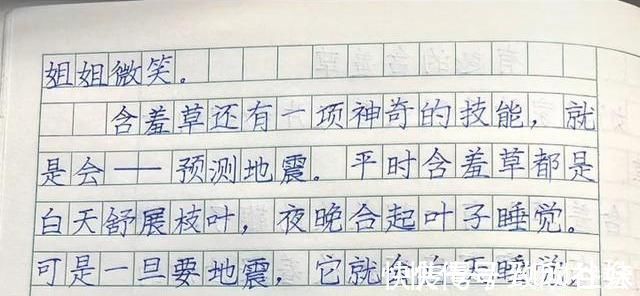 姐姐微笑。
含羞草还有一项神奇的技能，就
是会——预测地震。平时含羞草都是
白天舒展枝叶，夜晚合起叶子睡觉。
可是一旦要地震，它就会白天睡觉